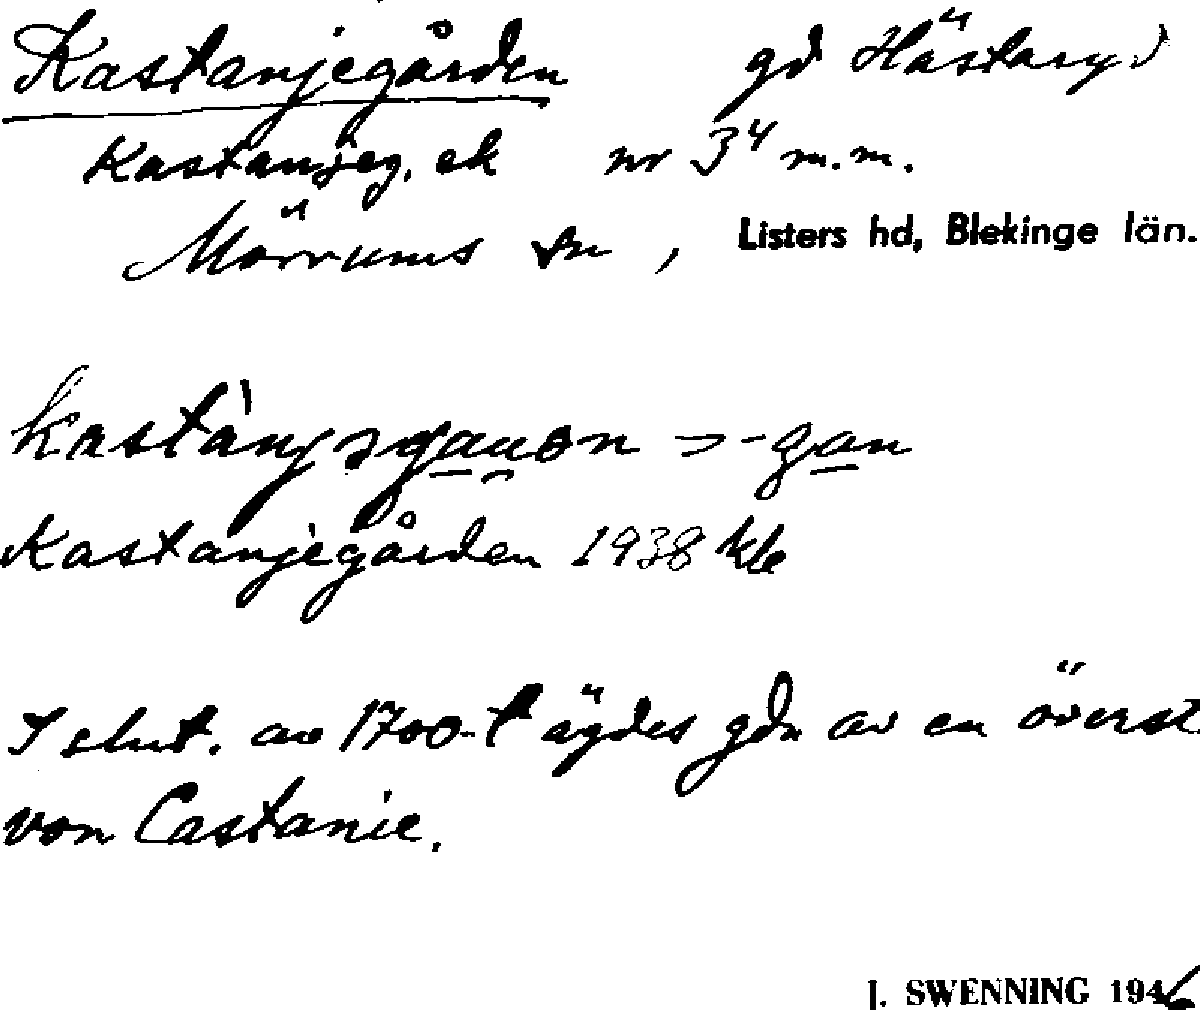 Kastanjegården gd Hästaryd
Kastanjeg. ek nr 3⁴ m.m.
Mörrums sn, Listers hd, Blekinge län.
Kastanjegården 1938 kb
I slut. av 1700-t ägdes gdn av en överst.
von Castanie.
J. SWENNING 1946